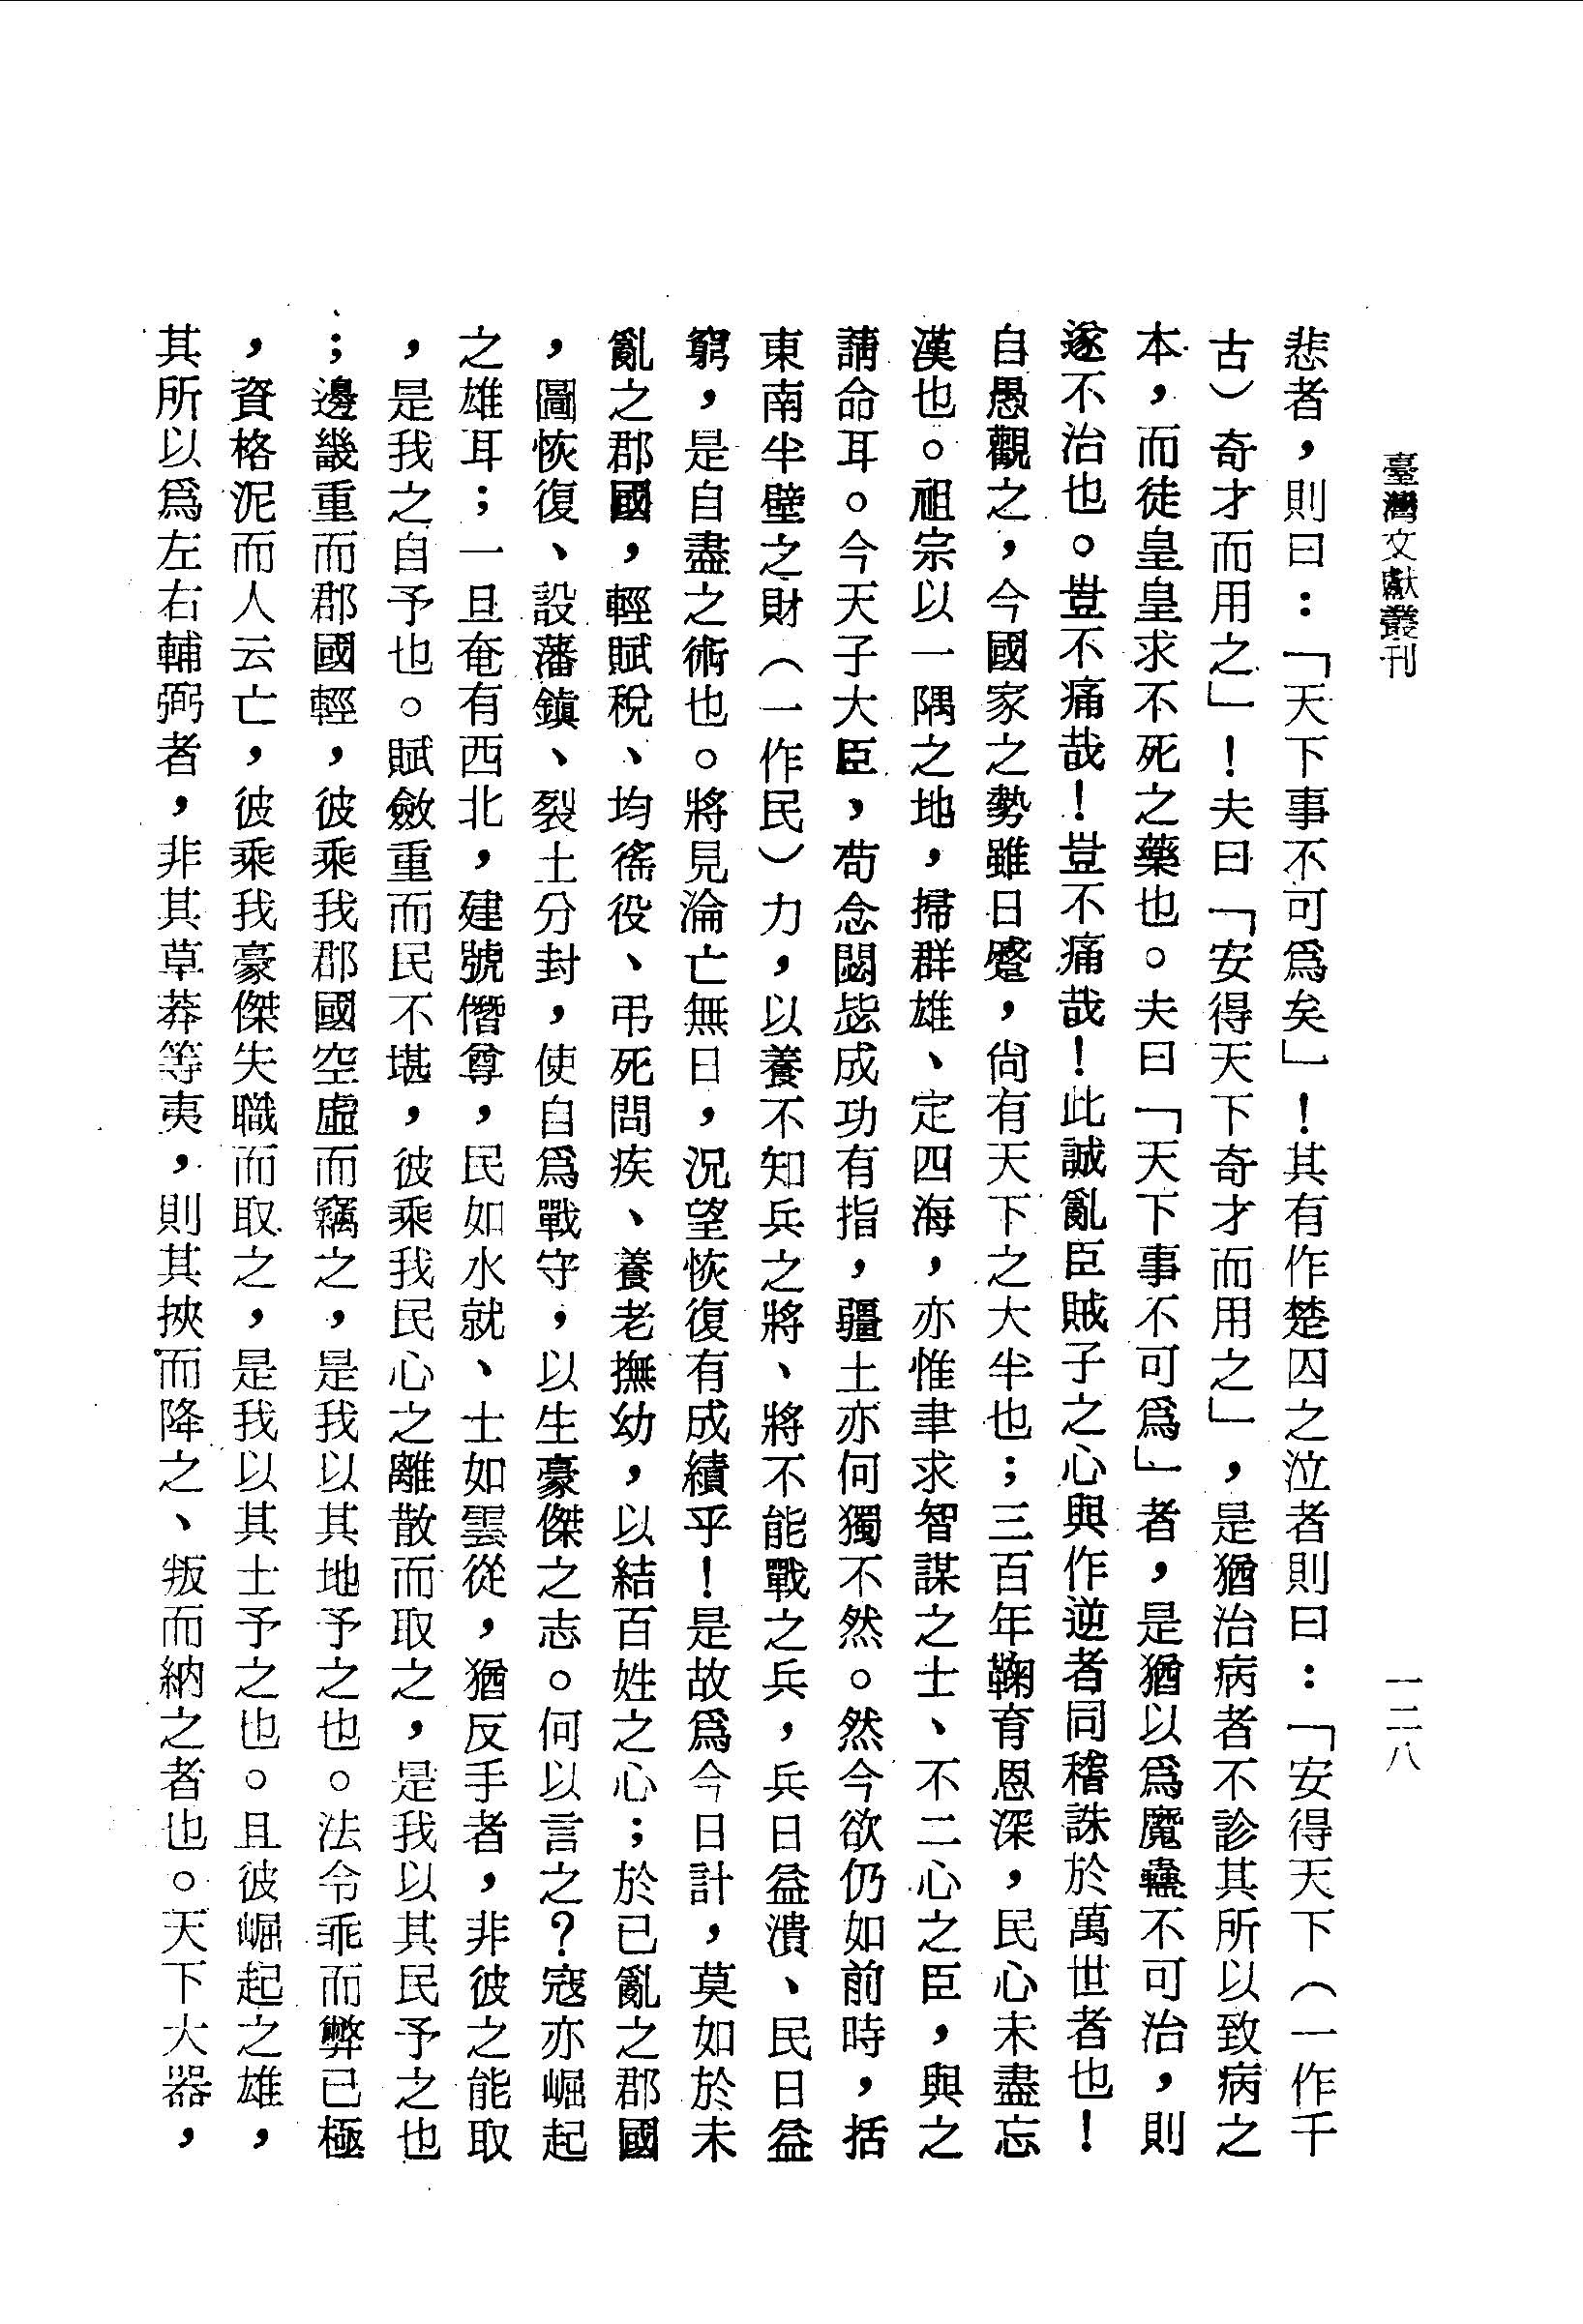 臺灣文獻叢刊
一二八
悲者，則曰：「天下事不可爲矣」！其有作楚囚之泣者則曰：「安得天下（一作千
古）奇才而用之」！夫曰「安得天下奇才而用之」，是猶治病者不診其所以致病之
本，而徒皇皇求不死之藥也。夫曰「天下事不可爲」者，是猶以爲魔蠱不可治，則
遂不治也。豈不痛哉！豈不痛哉！此誠亂臣賊子之心與作逆者同稽誅於萬世者也！
自愚觀之，今國家之勢雖日蹙，尙有天下之大半也；三百年鞠育恩深，民心未盡忘
漢也。祖宗以一隅之地，掃群雄、定四海，亦惟聿求智謀之士、不二心之臣，與之
請命耳。今天子大臣，苟念閟毖成功有指，疆土亦何獨不然。然今欲仍如前時，括
東南半壁之財（一作民）力，以養不知兵之將、將不能戰之兵，兵日益潰、民日益
窮，是自盡之術也。將見淪亡無日，況望恢復有成績乎！是故爲今日計，莫如於未
亂之郡國，輕賦稅、均徭役、弔死問疾、養老撫幼，以結百姓之心；於已亂之郡國
，圖恢復、設藩鎮、裂土分封，使自爲戰守，以生豪傑之志。何以言之？寇亦崛起
之雄耳；一旦奄有西北，建號僭尊，民如水就、士如雲從，猶反手者，非彼之能取
，是我之自予也。賦斂重而民不堪，彼乘我民心之離散而取之，是我以其民予之也
；邊畿重而郡國輕，彼乘我郡國空虛而竊之，是我以其地予之也。法令乖而弊已極
，資格泥而人云亡，彼乘我豪傑失職而取之，是我以其士予之也。且彼崛起之雄，
其所以爲左右輔弼者，非其草莽等夷，則其挾而降之、叛而納之者也。天下大器，